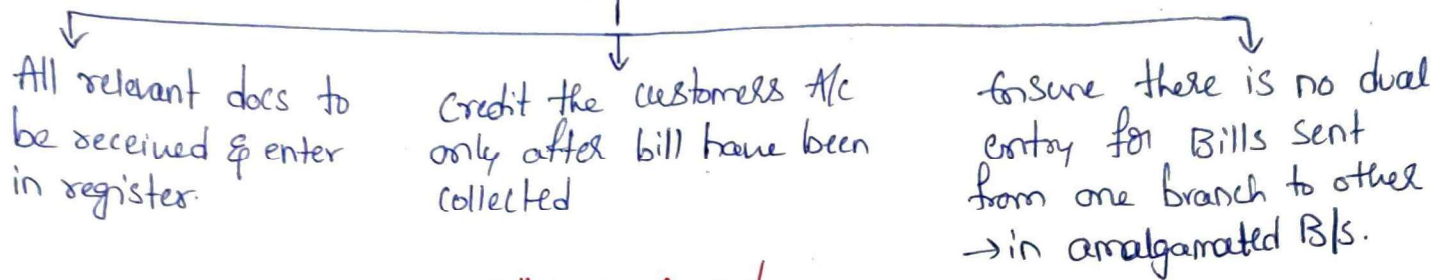 All relevant docs to
be received & enter
in register.
Credit the customers A/c
only after bill have been
collected
Ensure there is no dual
entry for Bills sent
from one branch to other
→ in amalgamated B/s.